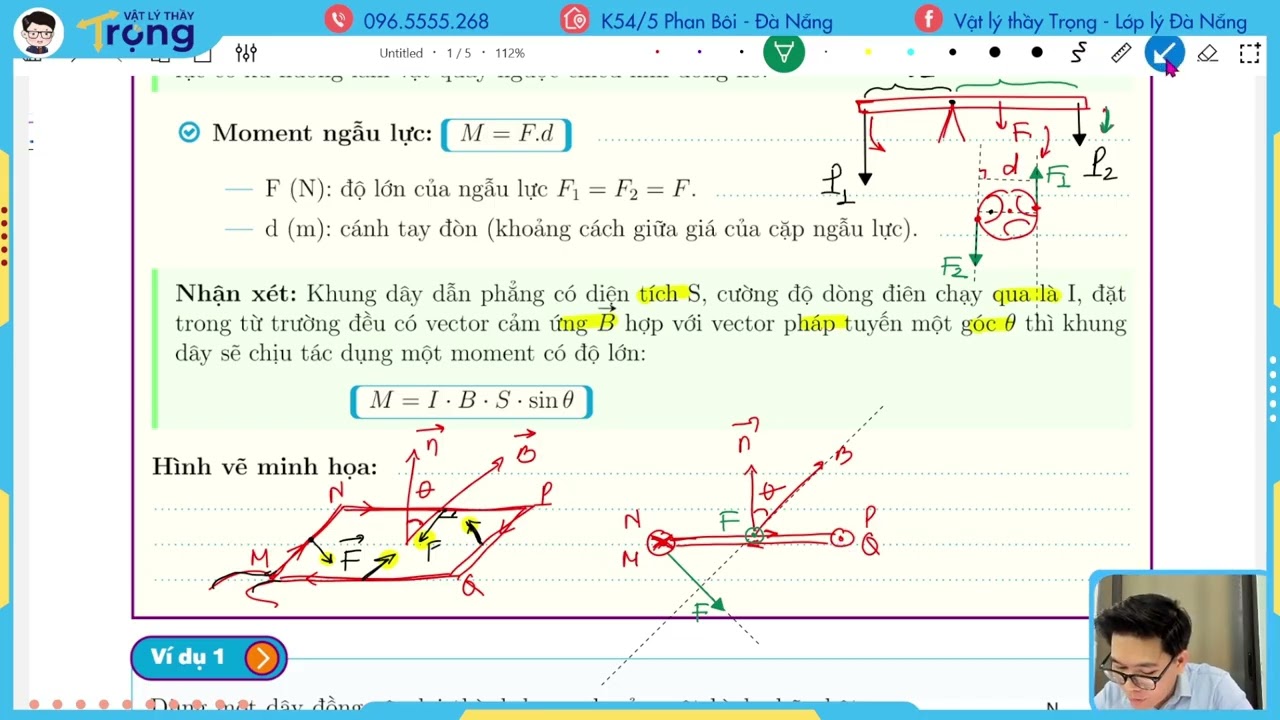 VẬT LÝ THẦY
Trọng
096.5555.268
K54/5 Phan Bôi - Đà Nẵng
Vật lý thầy Trọng - Lớp lý Đà Nẵng
Untitled · 1 / 5 · 112%
Moment ngẫu lực: M = F.d
— F (N): độ lớn của ngẫu lực F₁ = F₂ = F.
— d (m): cánh tay đòn (khoảng cách giữa giá của cặp ngẫu lực).
F
d
P₁
P₂
F₁
F₂
Nhận xét: Khung dây dẫn phẳng có diện tích S, cường độ dòng điên chạy qua là I, đặt
trong từ trường đều có vector cảm ứng B⃗ hợp với vector pháp tuyến một góc θ thì khung
dây sẽ chịu tác dụng một moment có độ lớn:
M = I · B · S · sin θ
Hình vẽ minh họa:
n⃗
B⃗
θ
N
P
M
F⃗
F
Q
n⃗
B
θ
N
F
P
M
Q
F
Ví dụ 1
N